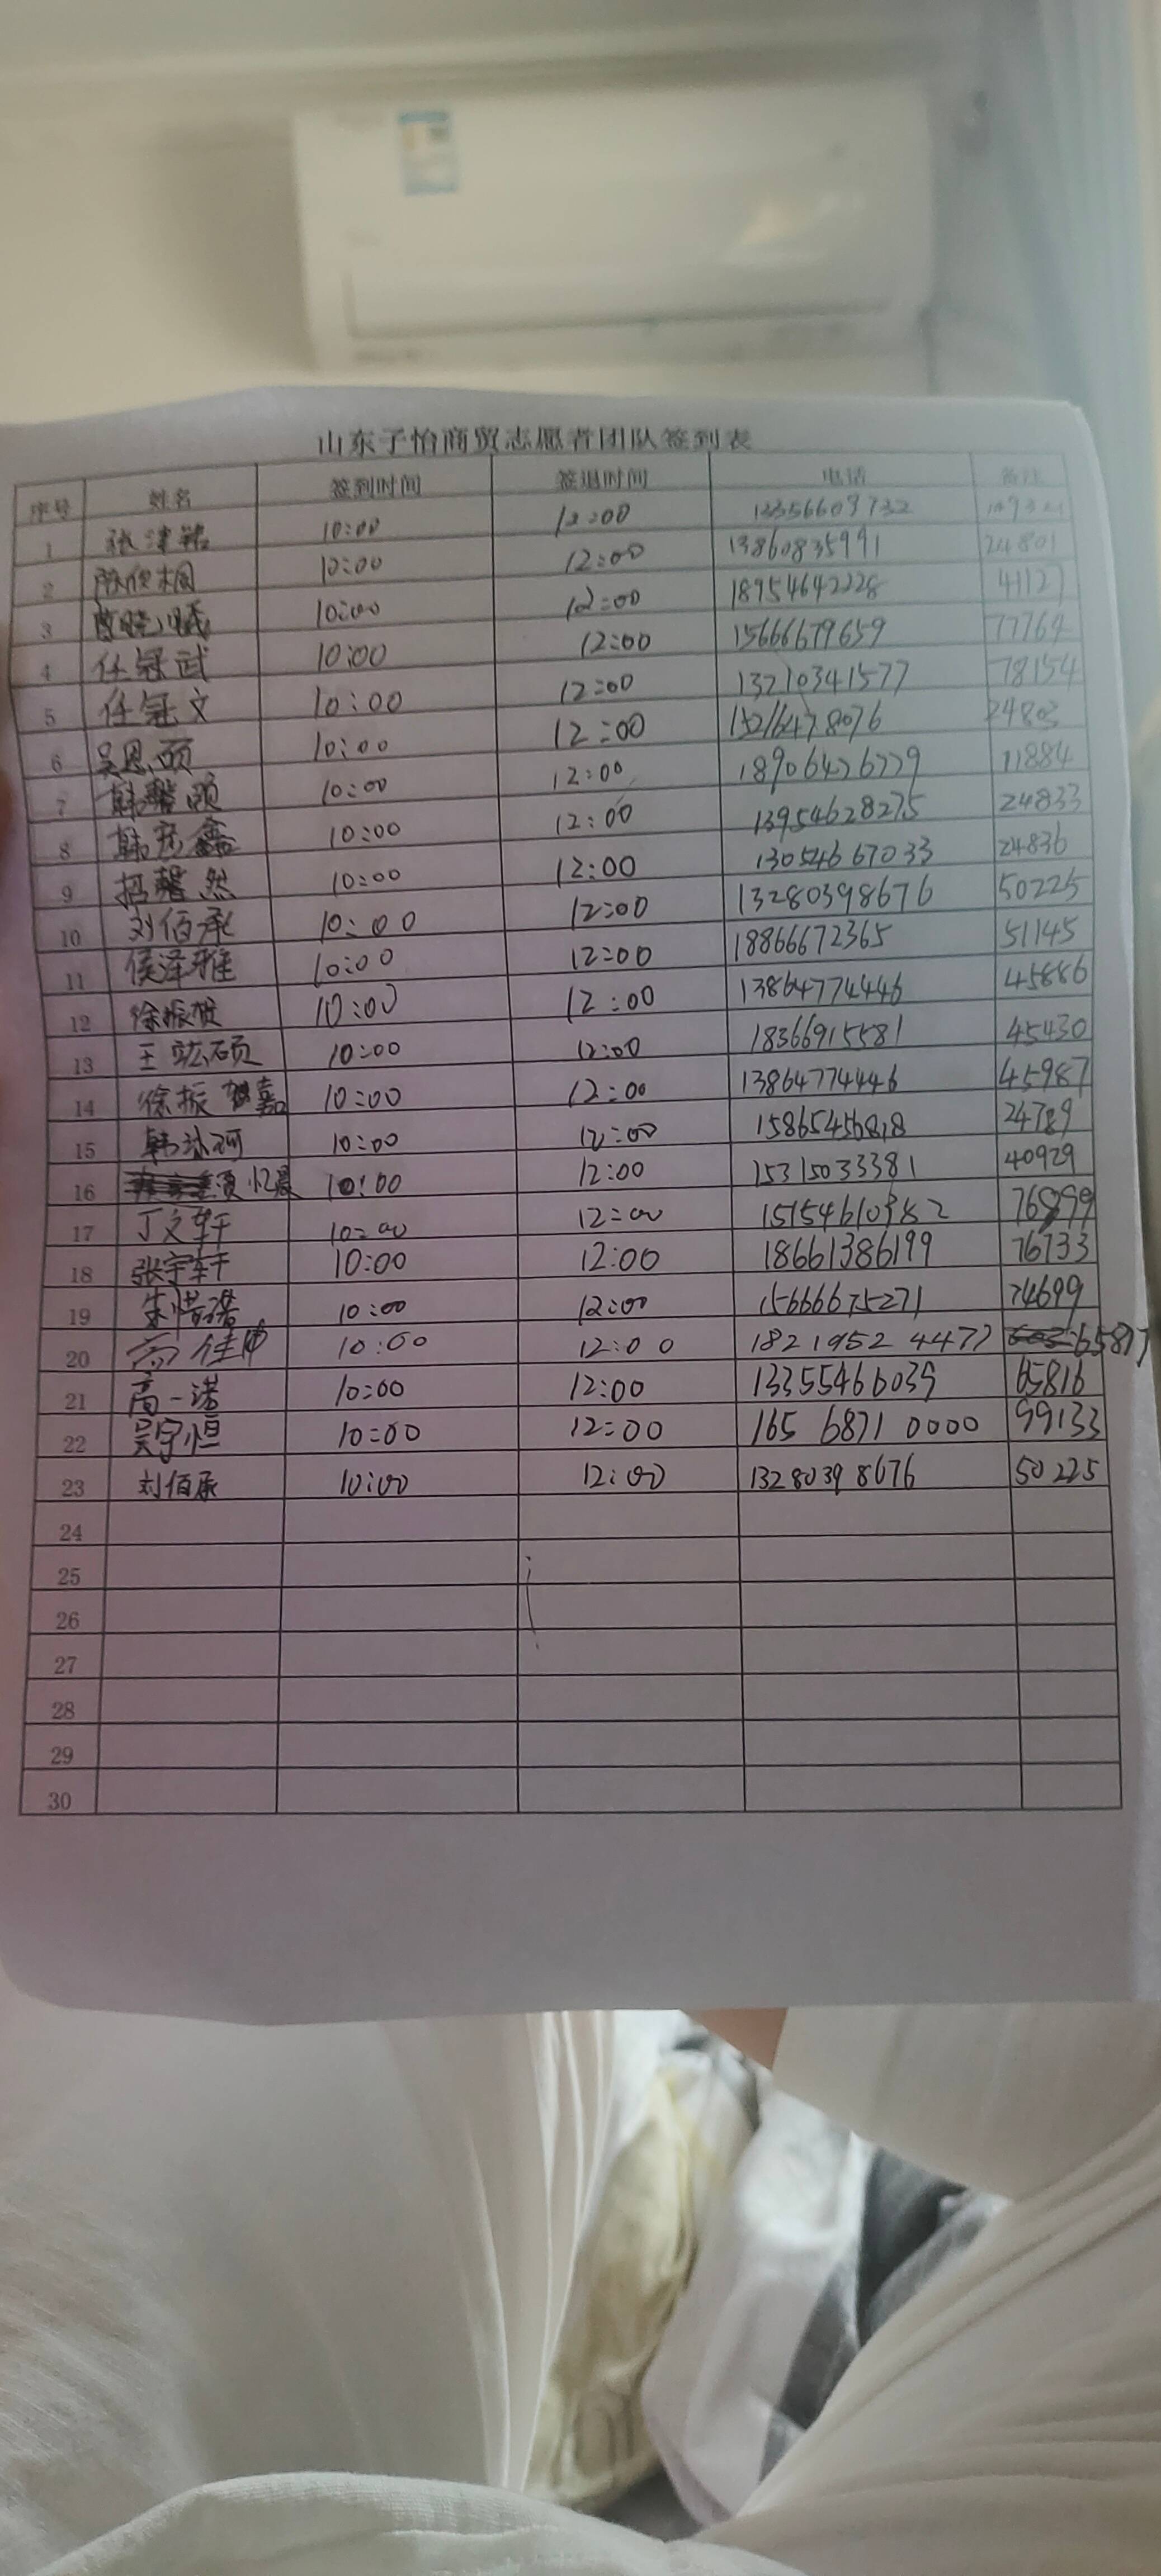 山东子怡商贸志愿者团队签到表
序号 姓名 签到时间 签退时间 电话 备注
1 张津铭 10:00 12:00 13356609732
2 10:00 12:00 13860835991 24801
3 10:00 12:00 18954642228 41127
4 任冠武 10:00 12:00 15666679659 77764
5 任冠文 10:00 12:00 13210341577 78154
6 吴恩硕 10:00 12:00 15216478076 24803
7 韩馨颐 10:00 12:00 18906426729 11884
8 韩彦鑫 10:00 12:00 13954628275 24833
9 馨然 10:00 12:00 13054667033 24836
10 刘佰承 10:00 12:00 13280398676 50225
11 侯泽雅 10:00 12:00 18866672365 51145
12 徐振 10:00 12:00 13864774446 45886
13 王竑硕 10:00 12:00 18366915581 45430
14 徐振嘉 10:00 12:00 13864774446 45987
15 韩沐珂 10:00 12:00 15865456818 24789
16 忆晨 10:00 12:00 15315033381 40929
17 丁文轩 10:00 12:00 76899
18 张宇轩 10:00 12:00 18661386199 76733
19 朱惜诺 10:00 12:00 15666675271 74699
20 高佳 10:00 12:00 1821952 4477 65817
21 高一诺 10:00 12:00 13355466039 65816
22 吴宇恒 10:00 12:00 165 6871 0000 99133
23 刘佰承 10:00 12:00 1328039 8676 50225
24
25
26
27
28
29
30